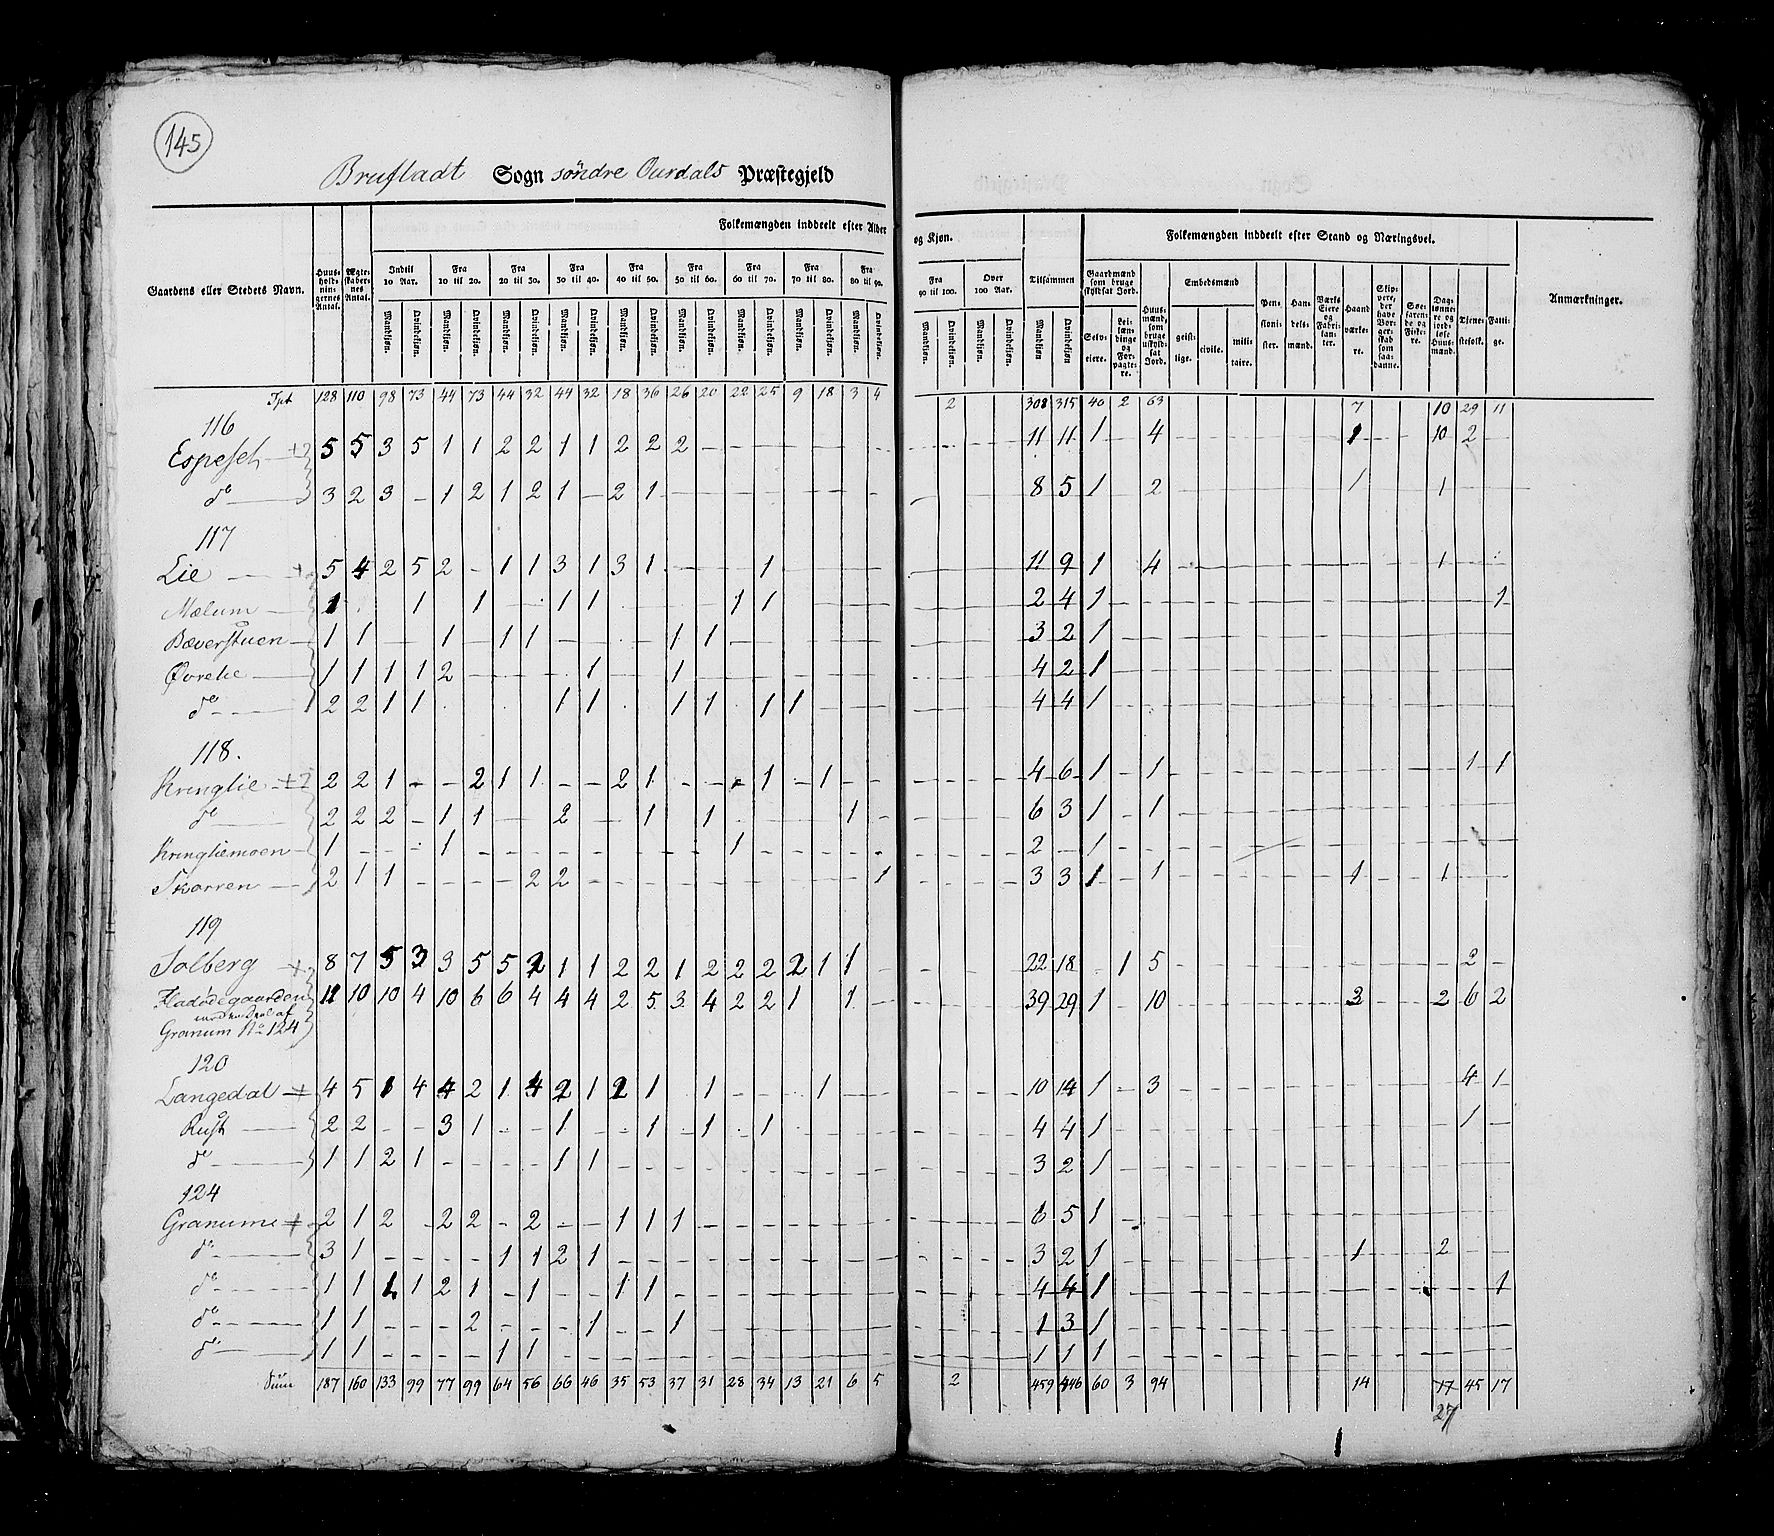 145
Brufladt Sogn søndre Ourdals Præstegjeld
Folkemængden inddeelt efter Alder og Kjøn.
Folkemængden inddeelt efter Stand og Næringsvei.
Gaardens eller Stedets Navn. Huusholdningernes Antal. Ægteskabernes Antal. Indtil 10 Aar. Fra 10 til 20. Fra 20 til 30. Fra 30 til 40. Fra 40 til 50. Fra 50 til 60. Fra 60 til 70. Fra 70 til 80. Fra 80 til 90. Fra 90 til 100. Over 100 Aar. Tilsammen Gaardmænd som bruge skyldsat Jord. Huusmænd, som bruge uskyldsat Jord. Embedsmænd Pensionister. Handelsmænd. Værks Eiere og Fabrikanter. Haandværkere. Skippere, der have Borgerskab som saadanne. Søefarende og Fiskere. Daglønnere og jordløse Huusmænd. Tjenestefolk. Fattige. Anmærkninger.
Mandkiøn. Qvindekiøn. Mandkiøn. Qvindekiøn. Mandkiøn. Qvindekiøn. Mandkiøn. Qvindekiøn. Mandkiøn. Qvindekiøn. Mandkiøn. Qvindekiøn. Mandkiøn. Qvindekiøn. Mandkiøn. Qvindekiøn. Mandkiøn. Qvindekiøn. Mandkiøn. Qvindekiøn. Mandkiøn. Qvindekiøn. Mandkiøn Qvindekiøn Selveiere. Leilændinge og Forpagtere. geistlige. civile. militaire.
Tpt 128 110 98 73 44 73 44 32 44 32 18 36 26 20 22 25 9 18 3 4 2 308 315 40 2 63 7 10 29 11
116
Espeset 5 5 3 5 1 1 2 2 1 1 2 2 2 11 11 1 4 1 10 2
do 3 2 3 - 1 2 1 2 1 - 2 1 8 5 1 2 1 1
117
Lie 5 4 2 5 2 - 1 1 3 1 3 1 1 11 9 1 4 1
Mælum 1 1 1 1 1 1 1 2 4 1 1
Bæverstuen 1 1 1 1 1 1 1 3 2 1
Øvrelie 1 1 1 1 2 1 1 4 2 1
do 2 2 1 1 1 1 1 1 1 1 4 4 1
118.
Kringlie 2 2 1 - - 2 1 1 - - 2 1 1 1 4 6 1 - 1 1 1
do 2 2 2 - 1 1 2 1 1 1 6 3 1 - 1
Kringliemoen 1 1 1 2 - 1
Skarren 2 1 1 2 2 1 3 3 1 - 1 1 1
119
Solberg 8 7 5 3 3 5 5 2 1 1 2 2 1 2 2 2 2 1 1 22 18 1 5 2
11 10 10 4 10 6 6 4 4 4 2 5 3 4 2 2 1 1 39 29 1 - 10 3 2 6 2
Granum No 124
120
Langedal 4 5 1 4 4 2 1 4 2 1 2 1 1 1 10 14 1 - 3 4 1
Rust 2 2 - - 3 1 1 1 1 1 4 4 1 1
do 1 1 2 1 1 1 3 2 1
124
Granum 2 1 2 - 2 2 - 2 - - 1 1 1 6 5 1
do 3 1 1 1 2 1 3 2 1 1 2
do 1 1 1 1 2 1 - 1 1 1 4 4 1 1
do 1 1 2 1 1 1 3 1
do 1 1 1 1 1 1 1
Sum 187 160 133 99 77 99 64 56 66 46 35 53 37 31 28 34 13 21 6 5 2 459 446 60 3 94 14 17 45 17
27